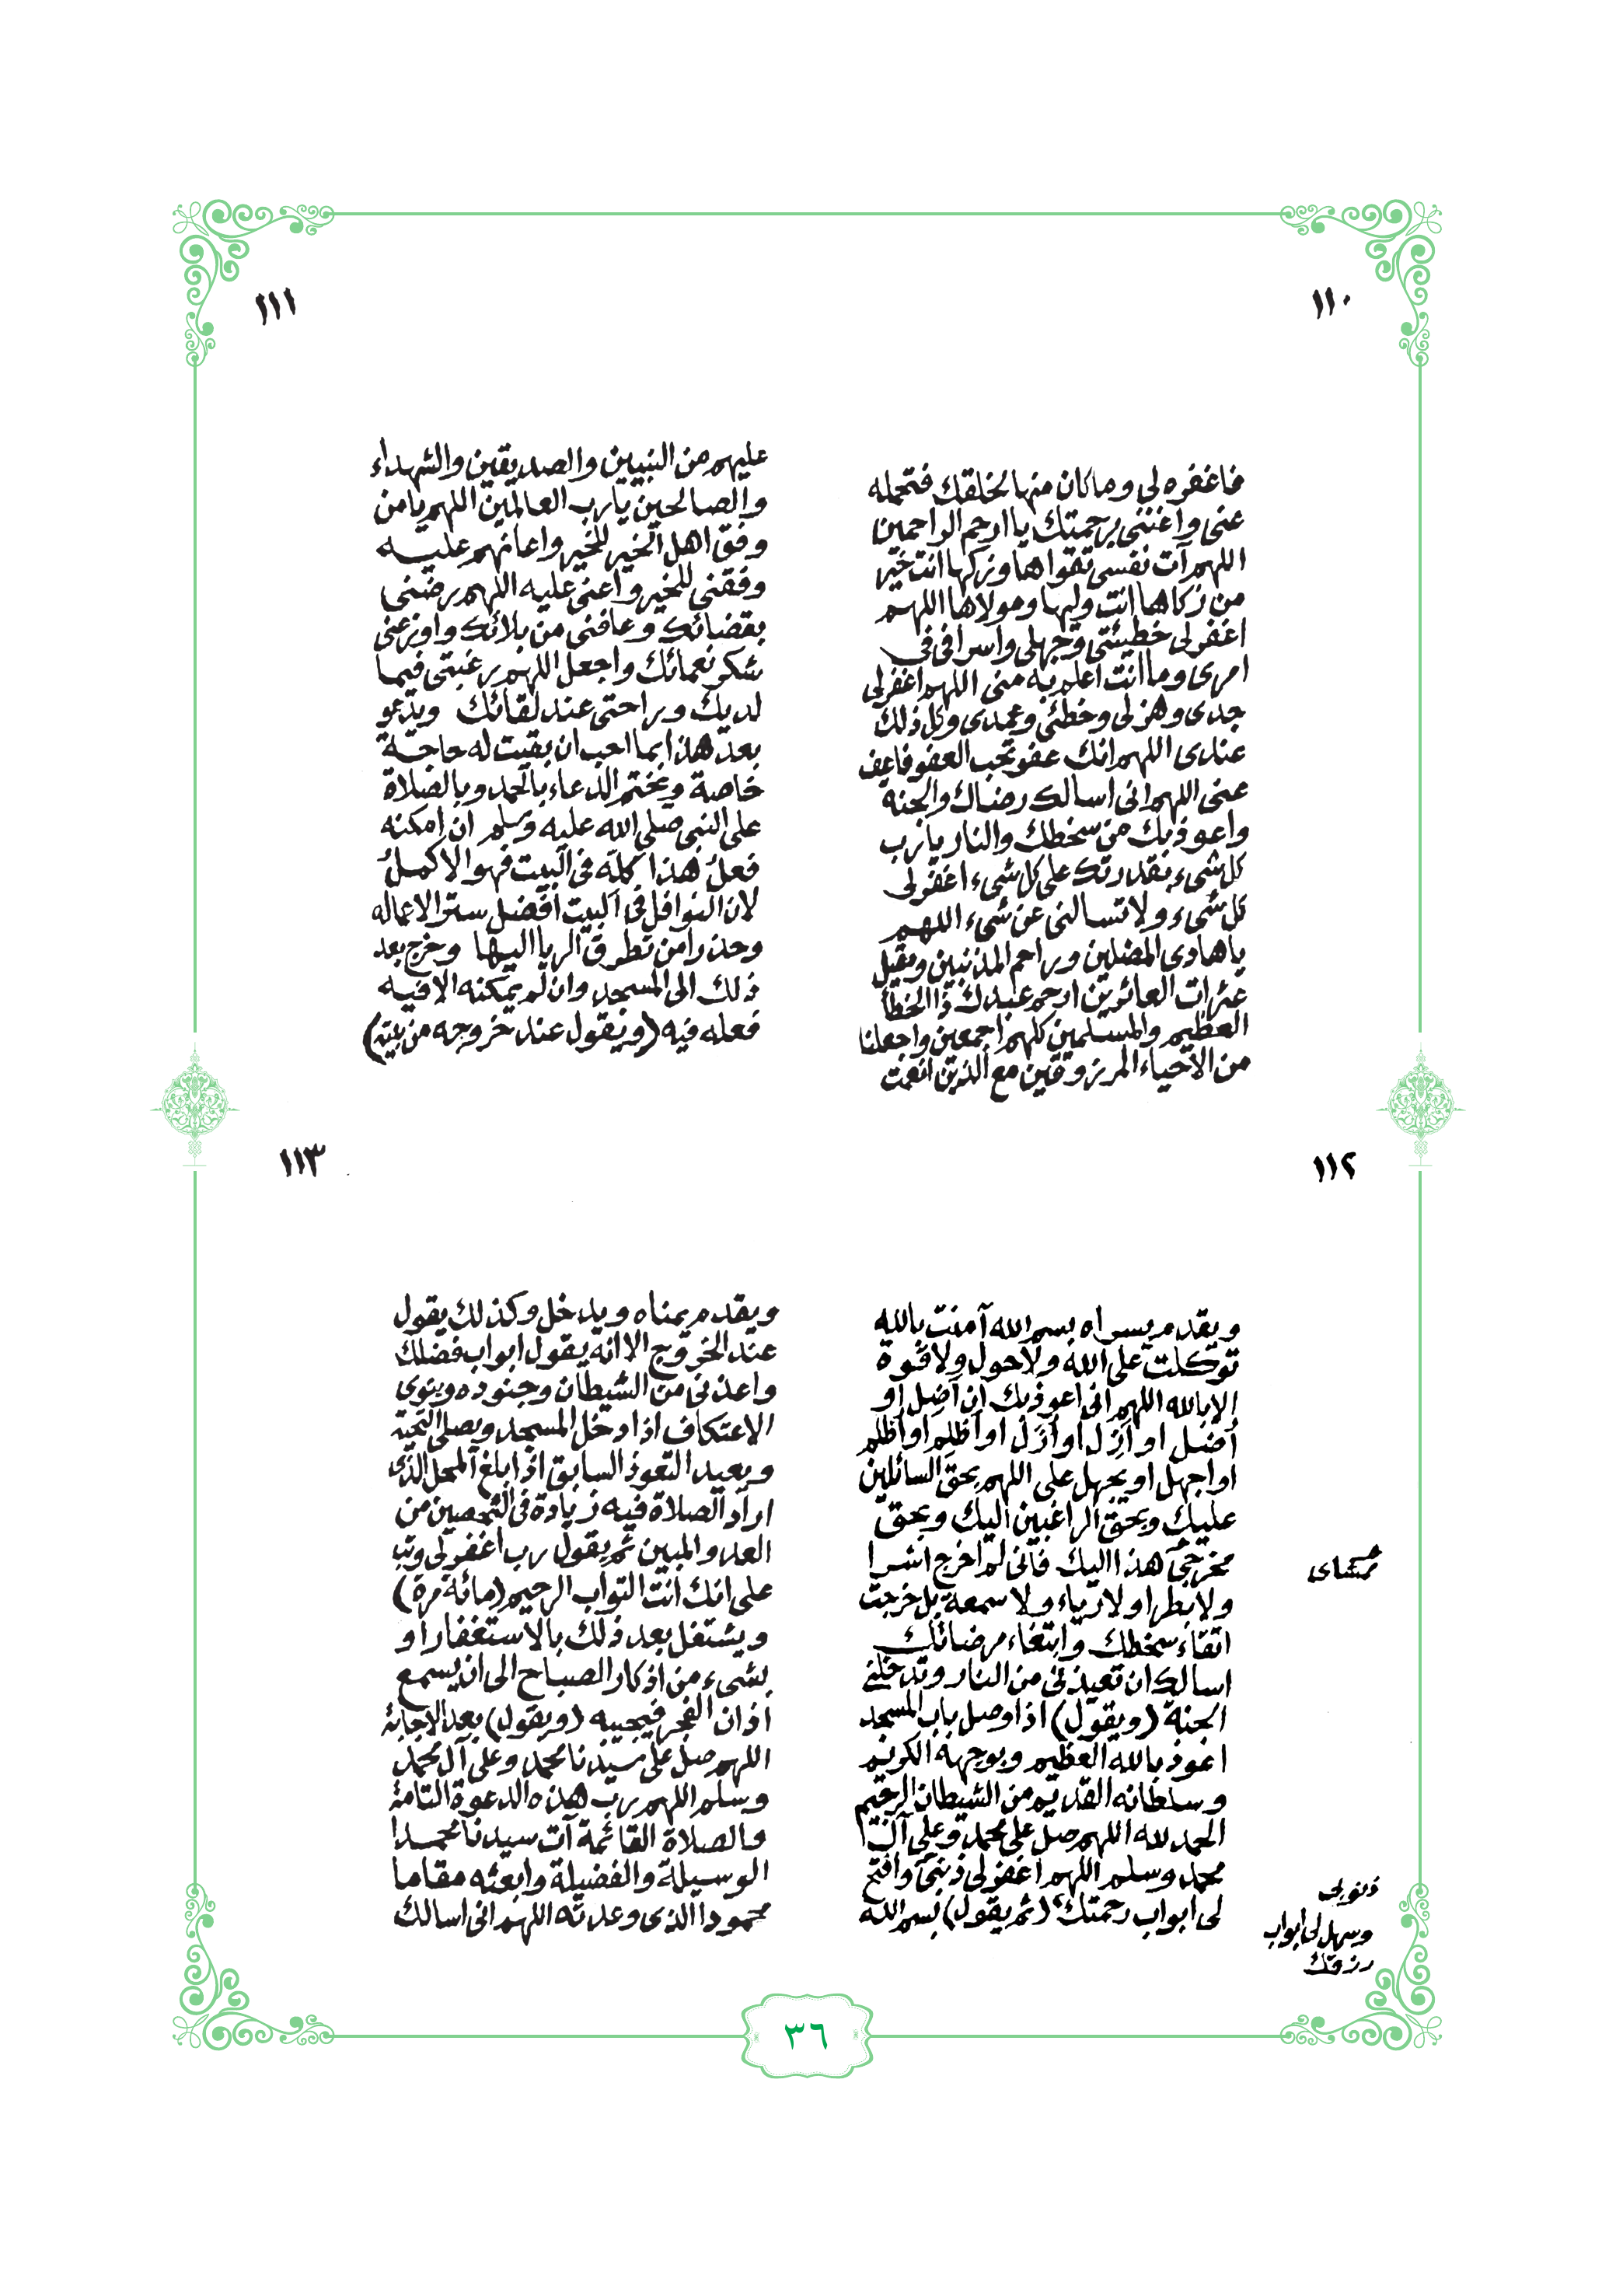 ١١٠
فاغفره لي وما كان منها لخلقك فتحمله
عنى واغننى برحمتك يا ارحم الراحمين
اللهم آت نفسى تقواها وزكها انت خير
من زكاها انت وليها ومولاها اللهم
اغفر لى خطيئتى وجهلى واسرافى فى
امرى وما انت اعلم به منى اللهم اغفر لى
جدى وهزلى وخطئى وعمدى وكل ذلك
عندى اللهم انك عفو تحب العفو فاعف
عنى اللهم انى اسالك رضاك والجنه
واعوذ بك من سخطك والنار يا رب
كل شىء بقدرتك على كل شىء اغفر لى
كل شىء ولا تسالنى عن شىء اللهم
يا هادى المضلين وراحم المذنبين ومقيل
عثرات العاثرين ارحم عبدك ذا الخطأ
العظيم والمسلمين كلهم اجمعين واجعلنا
من الأحياء المرزوقين مع الذين انعمت
١١١
عليهم من النبيين والصديقين والشهداء
والصالحين يا رب العالمين اللهم يا من
وفق اهل الخير للخير واعانهم عليه
وفقنى للخير واعنى عليه اللهم رضنى
بقضائك وعافنى من بلائك واوزعنى
شكر نعمائك واجعل اللهم رغبتى فيما
لديك وراحتى عند لقائك ويدعو
بعد هذا بما احب ان بقيت له حاجة
خاصة ويختم الدعاء بالحمد وبالصلاة
على النبى صلى الله عليه وسلم ان امكنه
فعل هذا كله فى البيت فهو الاكمل
لان النوافل فى البيت افضل سترا لاعماله
وحذرا من تطرق الريا اليها وخرج بعد
ذلك الى المسجد وان لم يمكنه الا فيه
فعله فيه (ويقول عند خروجه من بيته)
١١٢
ويقدم يسراه بسم الله آمنت بالله
توكلت على الله ولا حول ولا قوة
الا بالله اللهم انى اعوذ بك ان اضل او
أضل او ازل او أزل او اظلم او أظلم
او اجهل او يجهل على اللهم بحق السائلين
عليك وبحق الراغبين اليك وبحق
مخرجى هذا اليك فانى لم اخرج اشرا
ولا بطرا ولا رياء ولا سمعة بل خرجت
اتقاء سخطك وابتغاء مرضاتك
اسالك ان تعيذنى من النار وتدخلنى
الجنة (ويقول) اذا وصل باب المسجد
اعوذ بالله العظيم وبوجهه الكريم
وسلطانه القديم من الشيطان الرجيم
الحمد لله اللهم صل على محمد وعلى آل
محمد وسلم اللهم اغفر لى ذنبى وافتح
لى ابواب رحمتك (ثم يقول) بسم الله
ممشاى
ذنوبى
وسهل لى ابواب
رزقك
١١٣
ويقدم يمناه ويدخل وكذلك يقول
عند الخروج الا انه يقول ابواب فضلك
واعذنى من الشيطان وجنوده وينوى
الاعتكاف اذا دخل المسجد ويصلى التحية
ويعيد التعوذ السابق اذا بلغ المحل الذى
اراد الصلاة فيه زيادة فى التحصين من
العدو المبين ثم يقول رب اغفر لى وتب
على انك انت التواب الرحيم (مائة مرة)
ويشتغل بعد ذلك بالاستغفار او
بشىء من اذكار الصباح الى ان يسمع
أذان الفجر فيجيبه (ويقول) بعد الاجابة
اللهم صل على سيدنا محمد وعلى آل محمد
وسلم اللهم رب هذه الدعوة التامة
والصلاة القائمة آت سيدنا محمدا
الوسيلة والفضيلة وابعثه مقاما
محمودا الذى وعدته اللهم انى اسالك
٣٦